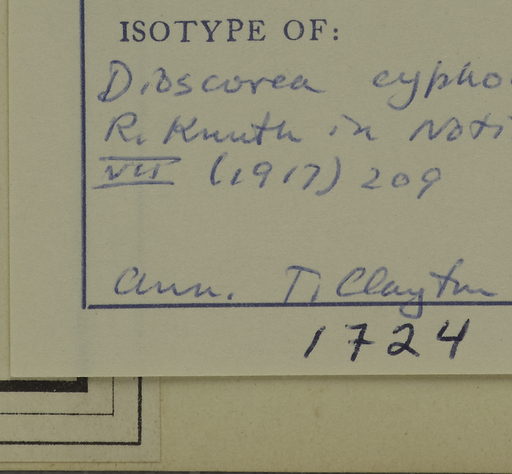 ISOTYPE OF:
Dioscorea cypho
R. Knuth in Noti
VII (1917) 209
Ann. T. Clayton
1724